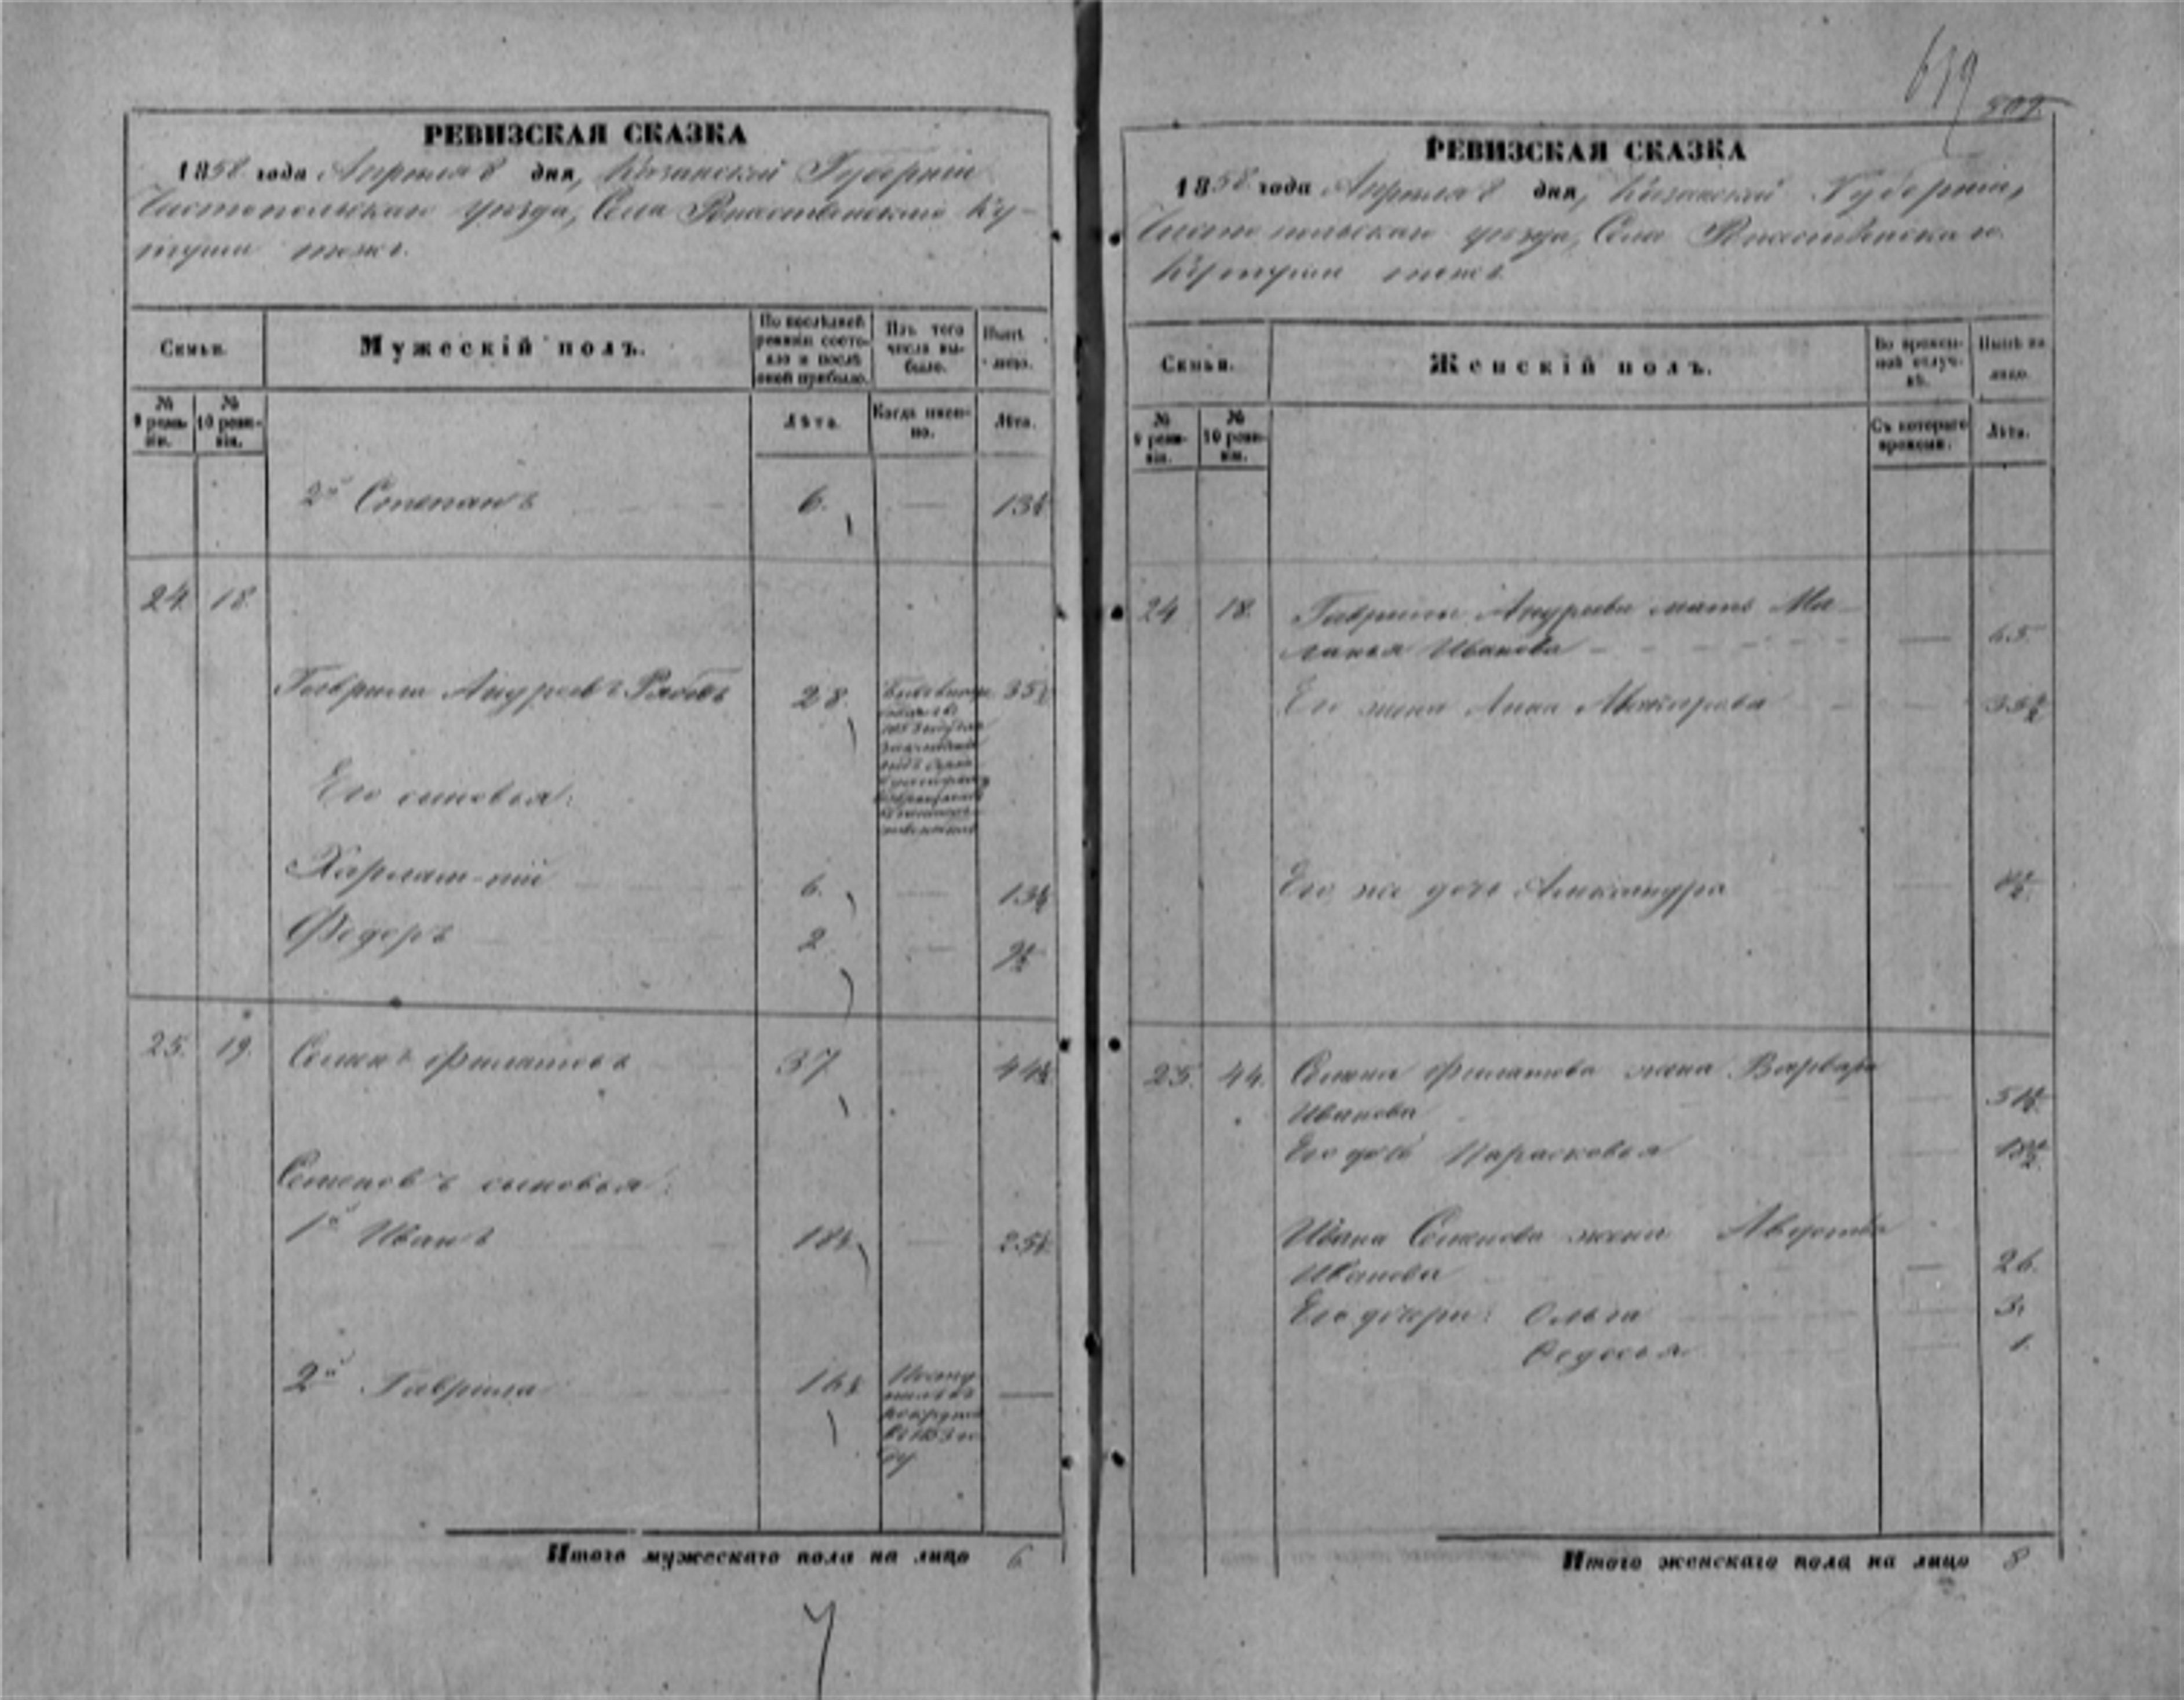 619
509.
РЕВИЗСКАЯ СКАЗКА
1858 года Апреля 8 дня, Казанской Губернии
Чистопольскаго уезда, Села Рождественскаго Ку-
туши тожъ.
Семьи.
Мужескій полъ.
По послѣдней ревизіи состояло и послѣ оной прибыло.
Изъ того числа выбыло.
Нынѣ на лицо.
№ 9 ревизіи.
№ 10 ревизіи.
Лѣта.
Когда именно.
Лѣта.
2й Степанъ 6. — 13½
24. 18.
Гаврила Андреевъ 28. 35½
Его сыновья:
Харлампий 6. — 13½
Федоръ 2 — 9½
25. 19. Семенъ Филатовъ 37 — 44½
Семеновъ сыновья:
1й Иванъ 18½ — 25½
2й Гаврила 16½ Посту
пилъ въ
рекруты
въ 1853 го
ду —
Итого мужескаго пола на лицо 6
РЕВИЗСКАЯ СКАЗКА
1858 года Апреля 8 дня, Казанской Губернии,
Чистопольскаго уезда, Села Рождественскаго
Кутуши тожъ
Семьи.
Женскій полъ.
Во временной отлучкѣ.
Нынѣ на лицо.
№ 9 ревизіи.
№ 10 ревизіи.
Съ котораго времени.
Лѣта.
24 18. Гаврилы Андреева мать Ма-
ланья Иванова — 65
Его жена Анна Макарова — 35½
Его же дочь Александра — 4½
25. 44. Семена Филатова жена Варвара
Иванова — 51½
Его дочь Парасковья — 18½
Ивана Семенова жена Авдотья
Иванова — 26.
Его дочери: Ольга — 3.
Федосья — 1.
Итого женскаго пола на лицо 8